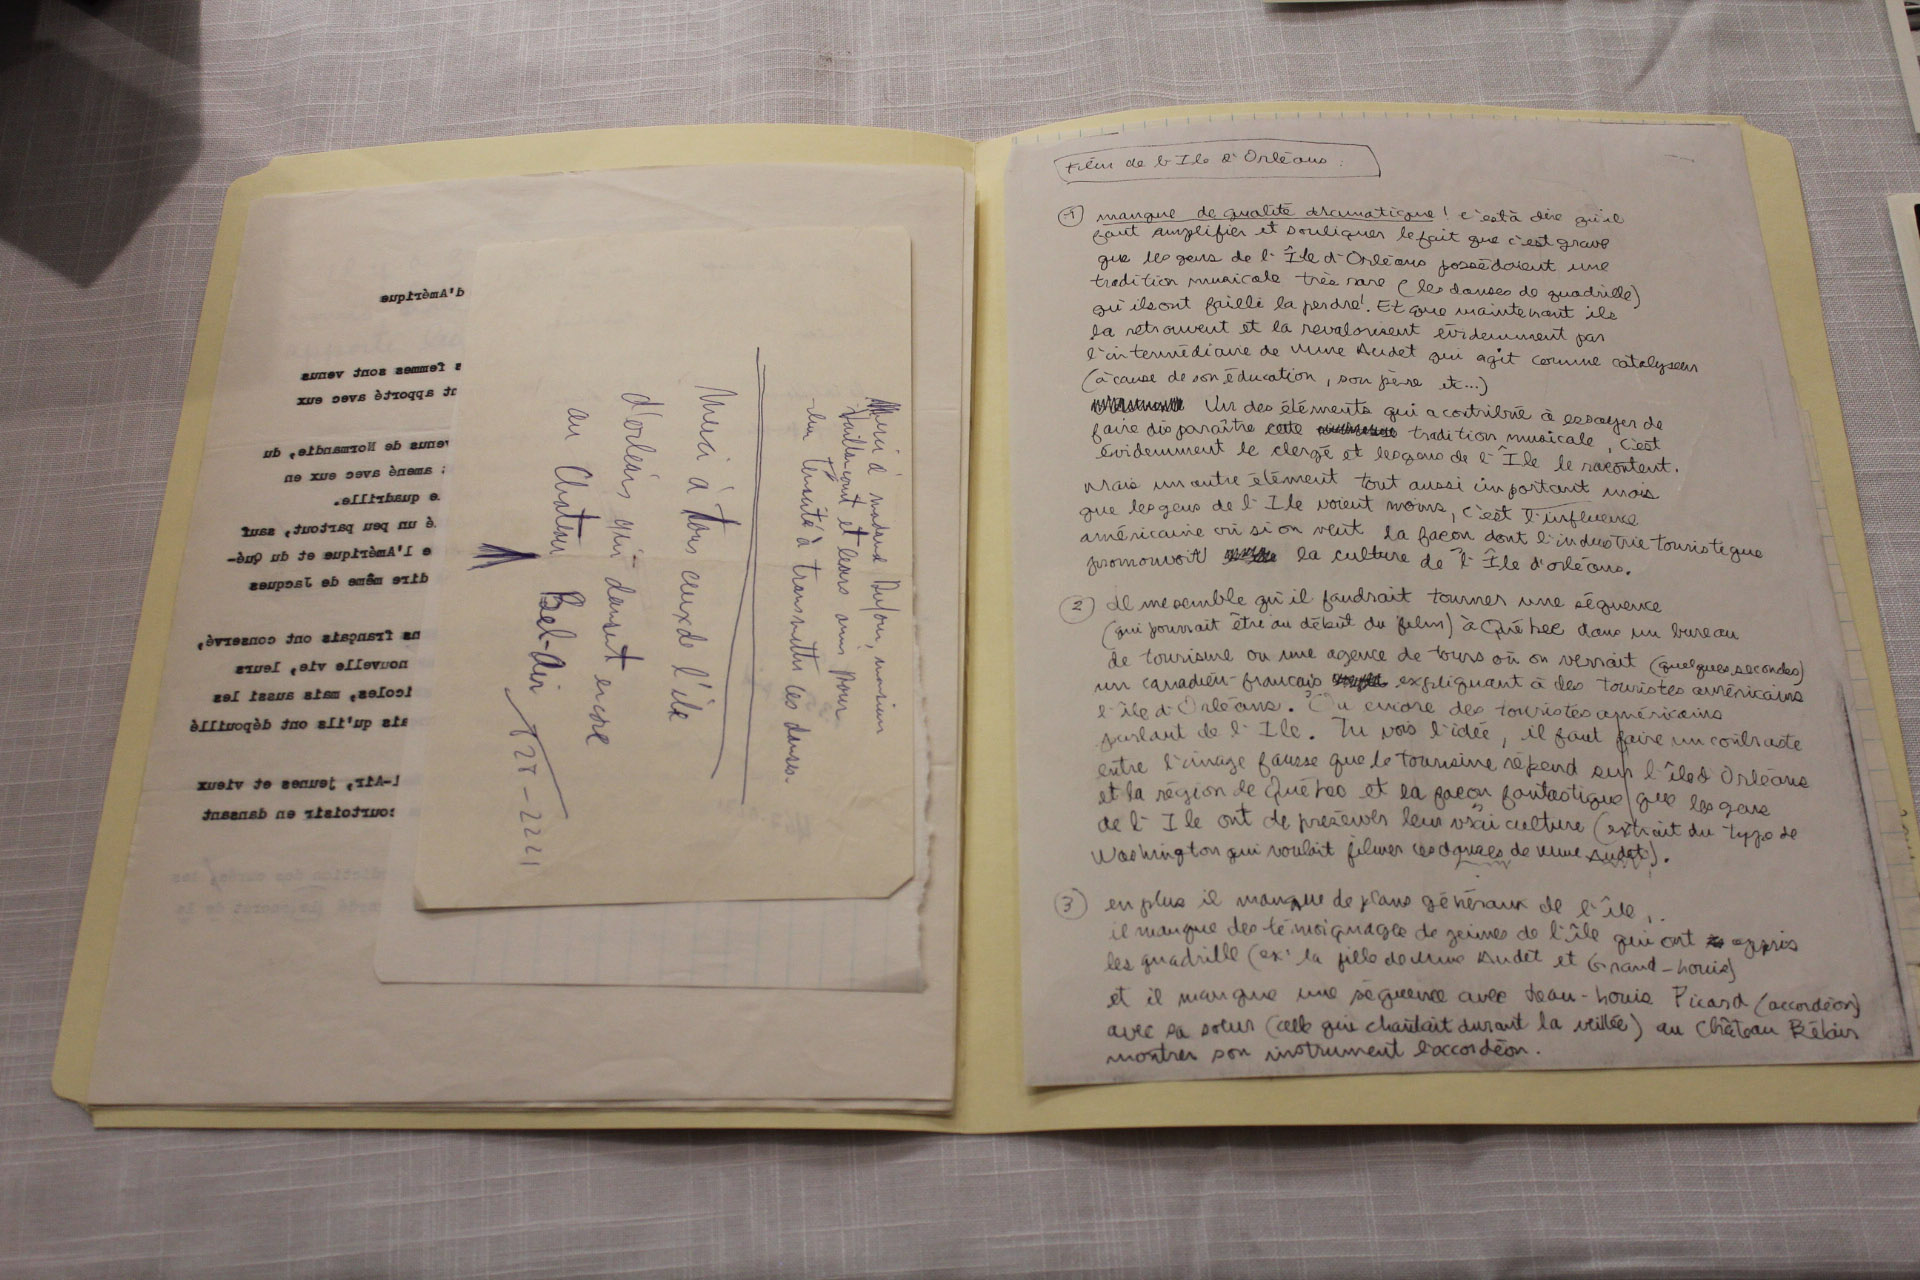 d'Amérique
s femmes sont venus
nt apporté avec eux
venus de Normandie, du
t amené avec eux en
e quadrille.
té un peu partout, sauf
e l'Amérique et du Qué-
dire même de Jacques
ns français ont conservé,
nouvelle vie, leurs
icoles, mais aussi les
ais qu'ils ont dépouillé
l-Air, jeunes et vieux
courtoisir en dansant
diction des curés, les
Merci à madame Dufour, monsieur
Vaillancourt et leurs amis pour
leur ténacité à transmettre ces danses.
Merci à tous ceux de l'île
d'orléans qui dansent encore
au Chateau Bel-Air
828-2221
Film de l'Ile d'Orléans :
1 manque de qualité dramatique! c'est à dire qu'il
faut amplifier et souligner le fait que c'est grave
que les gens de l'Île d'Orléans possédaient une
tradition musicale très rare (les danses de quadrille)
qu'ils ont failli la perdre! Et que maintenant ils
la retrouvent et la revalorisent évidemment par
l'intermédiaire de Mme Audet qui agit comme catalyseur
(à cause de son éducation, son père etc...)
Un des éléments qui a contribué à essayer de
faire disparaître cette tradition musicale, c'est
évidemment le clergé et les gens de l'Île le racontent.
Mais un autre élément tout aussi important mais
que les gens de l'Ile voient moins, c'est l'influence
américaine ou si on veut la façon dont l'industrie touristique
promouvoit la culture de l'Île d'orléans.
2 Il me semble qu'il faudrait tourner une séquence
(qui pourrait être au début du film) à Québec dans un bureau
de tourisme ou une agence de tours où on verrait (quelques secondes)
un canadien-français expliquant à des touristes américains
l'île d'Orléans. Ou encore des touristes américains
parlant de l'Ile. Tu vois l'idée, il faut faire un contraste
entre l'image fausse que le tourisme répend sur l'île d'Orléans
et la région de Québec et la façon fantastique que les gens
de l'Ile ont de préserver leur vrai culture (extrait du type de
Washington qui voulait filmer les danses de Mme Audet).
3 en plus il manque de plans généraux de l'île,
il manque des témoignages de jeunes de l'île qui ont appris
les quadrille (ex: la fille de Mme Audet et Grand-Louis)
et il manque une séquence avec Jean-Louis Picard (accordéon)
avec sa soeur (celle qui chantait durant la veillée) au Château Bélair
montrer son instrument l'accordéon.